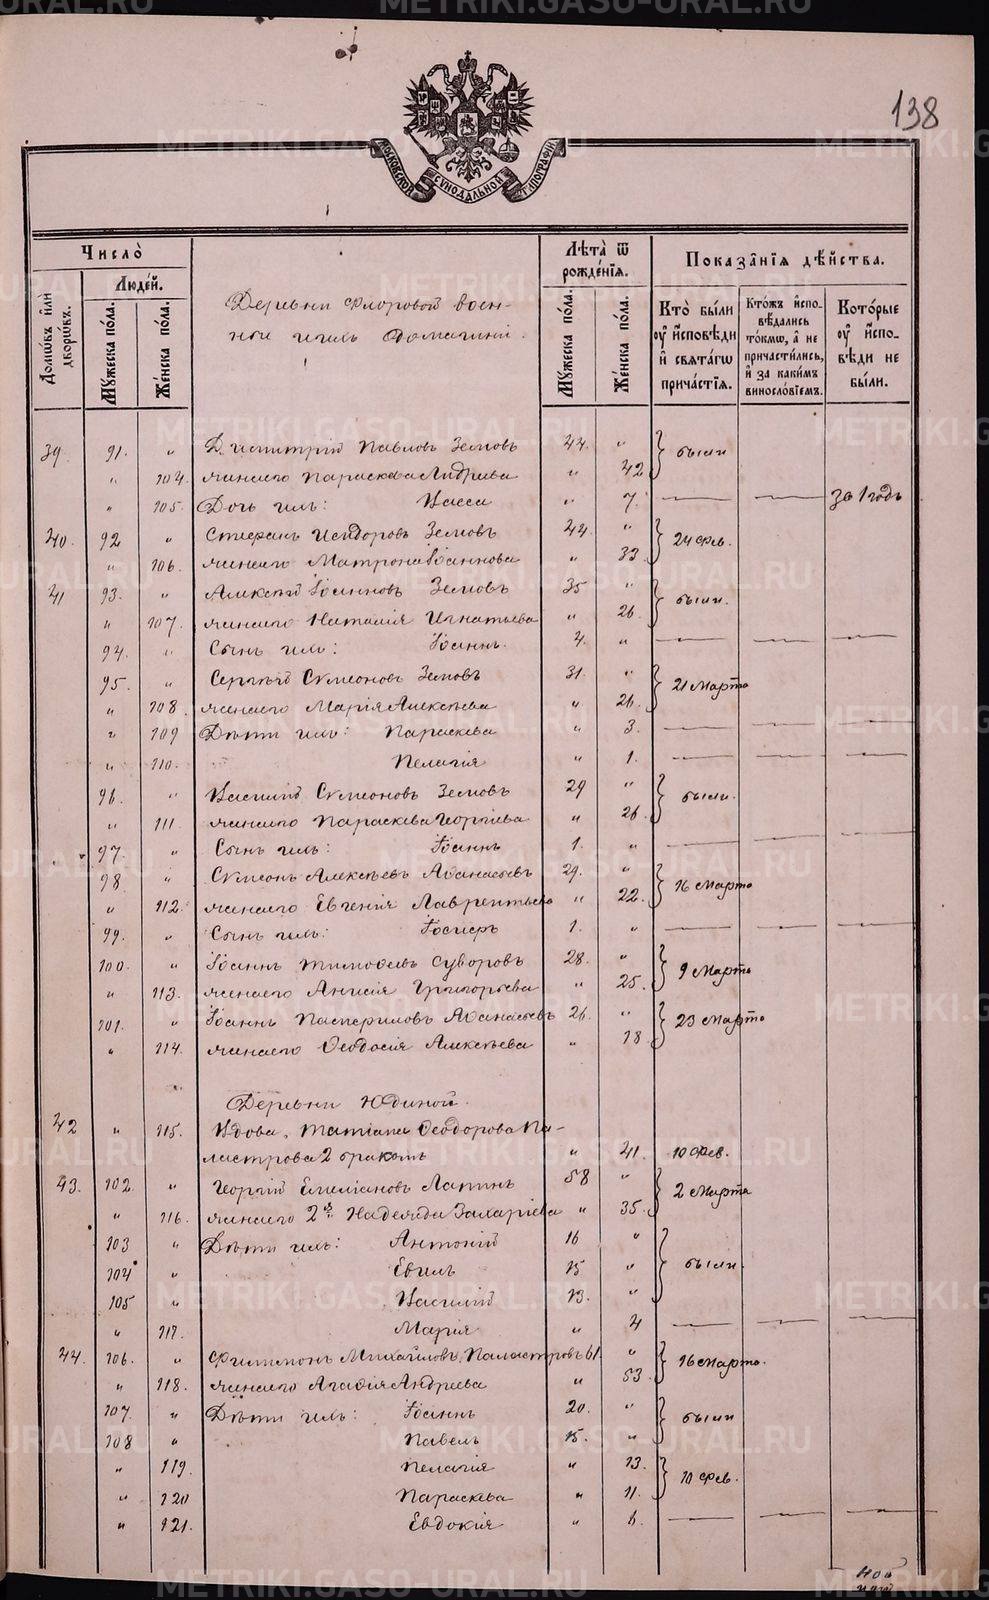 138
МОСКОВСКОЙ СѴНОДАЛЬНОЙ ТИПОГРАФІИ
Число̀
Людей.
Домѡвъ и҆лѝ дворѡвъ.
Мꙋжеска по́ла.
Же́нска по́ла.
Лѣ́та ѿ рожде́нїѧ.
Мꙋжеска по́ла.
Же́нска по́ла.
Показа̑нїѧ дѣ́йства.
Кто̀ бы́ли ᲂу҆ и҆сповѣди и҆ свѧта́гѡ прича́стїѧ.
Кто́жъ и҆сповѣдались то́кмѡ, а҆ не причасти́лись, и҆ за каки́мъ винословїемъ.
Кото́рые ᲂу҆ и҆сповѣди не бы́ли.
Деревни Флоровой воен-
ные и ихъ домашніи.
39. 91. " Димитрій Павловъ Земовъ 44. " были
" 104. жена его Параскева Андреева " 42
" 105. Дочь ихъ: Васса " 7. — — за 1 годъ
40. 92 " Стефанъ Исидоровъ Земовъ 44. " 24 Фев.
" 106. жена его Матрона Іоаннова " 33.
41 93. " Алексѣй Іоанновъ Земовъ 35 " были.
" 107. жена его Наталія Игнатьева " 26.
94. " Сынъ ихъ: Іоаннъ. 4. " — — —
95. " Сергѣй Сѵмеоновъ Земовъ 31. " 21 Марта
" 108. жена его Марія Алексѣева " 26.
" 109 Дѣти ихъ: Параскева " 3. — — —
" 110. Пелагія " 1. — — —
96. " Василій Сѵмеоновъ Земовъ 29 " были.
" 111. жена его Параскева Георгіева " 26.
97. " Сынъ ихъ: Іоаннъ 1. " — — —
98. " Сѵмеонъ Алексѣевъ Аѳанасьевъ 29. " 16 Марта
" 112. жена его Евгенія Лаврентьева " 22.
99. " Сынъ ихъ: Іосифъ 1. " — — —
100. " Іоаннъ Тимоѳеевъ Суворовъ 28. " 9 Марта
" 113. жена его Анисія Григорьева " 25.
101. " Іоаннъ Панфиловъ Аѳанасьевъ 26. " 23 Марта
" 114. жена его Ѳеодосія Алексѣева " 18
Деревни Юдиной.
42 " 115. Вдова, Татіана Ѳеодорова Па-
ластрова 2 бракомъ " 41. 10 Фев.
43. 102. " Георгій Емеліановъ Лапинъ 58 " 2 Марта
" 116. жена его 2я Надежда Захаріева " 35.
103 " Дѣти ихъ: Антоній 16 " были.
104 " Евѳилъ 15 "
105 " Василій 13. "
" 117. Марія " 4 — — —
44. 106. " Филимонъ Михайловъ Паластровъ 61. " 16 Марта.
" 118. жена его Агафія Андреева " 53
107. " Дѣти ихъ: Іоаннъ 20. " были
108 " Павелъ 15. "
" 119. Пелагія " 13. 10 Фев.
" 120 Параскева " 11.
" 121. Евдокія " 6. — — —